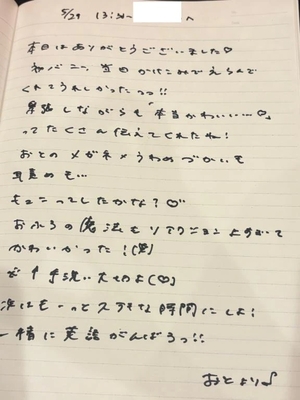 5/29 13:30~ へ
本日はありがとうございました♡
初バニー、当日かけこみでえらんで
くれてうれしかったっっ!!
しながらも「本当かわいい…♡」
ってたくさん伝えてくれたね!
おとのメガネ×うわめづかいも
見めも…
キュンってしたかな?♡
おふろの魔法もリアクションよすぎて
かわいかった!(笑)
手洗い大切よ(♡)
次はもーっとステキな時間にしよ!
一緒に英語がんばろっ!!
おとより♪